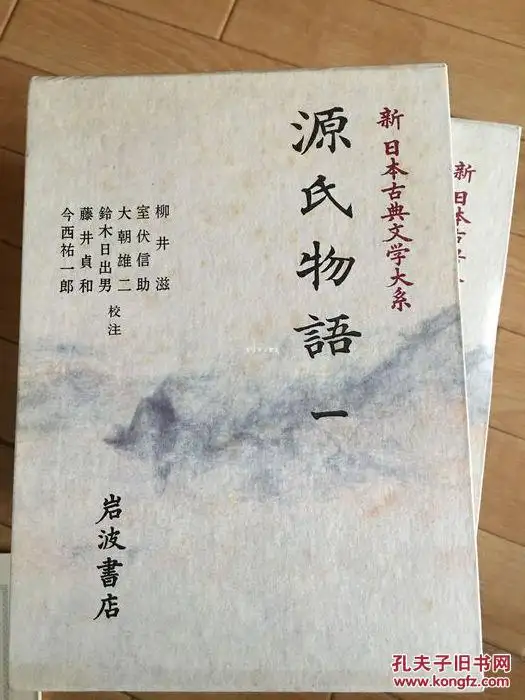 新 日本古典文学大系
源氏物語 一
柳井滋
室伏信助
大朝雄二
鈴木日出男
藤井貞和
今西祐一郎
校注
岩波書店
新 日本古
孔夫子旧书网
www.kongfz.com